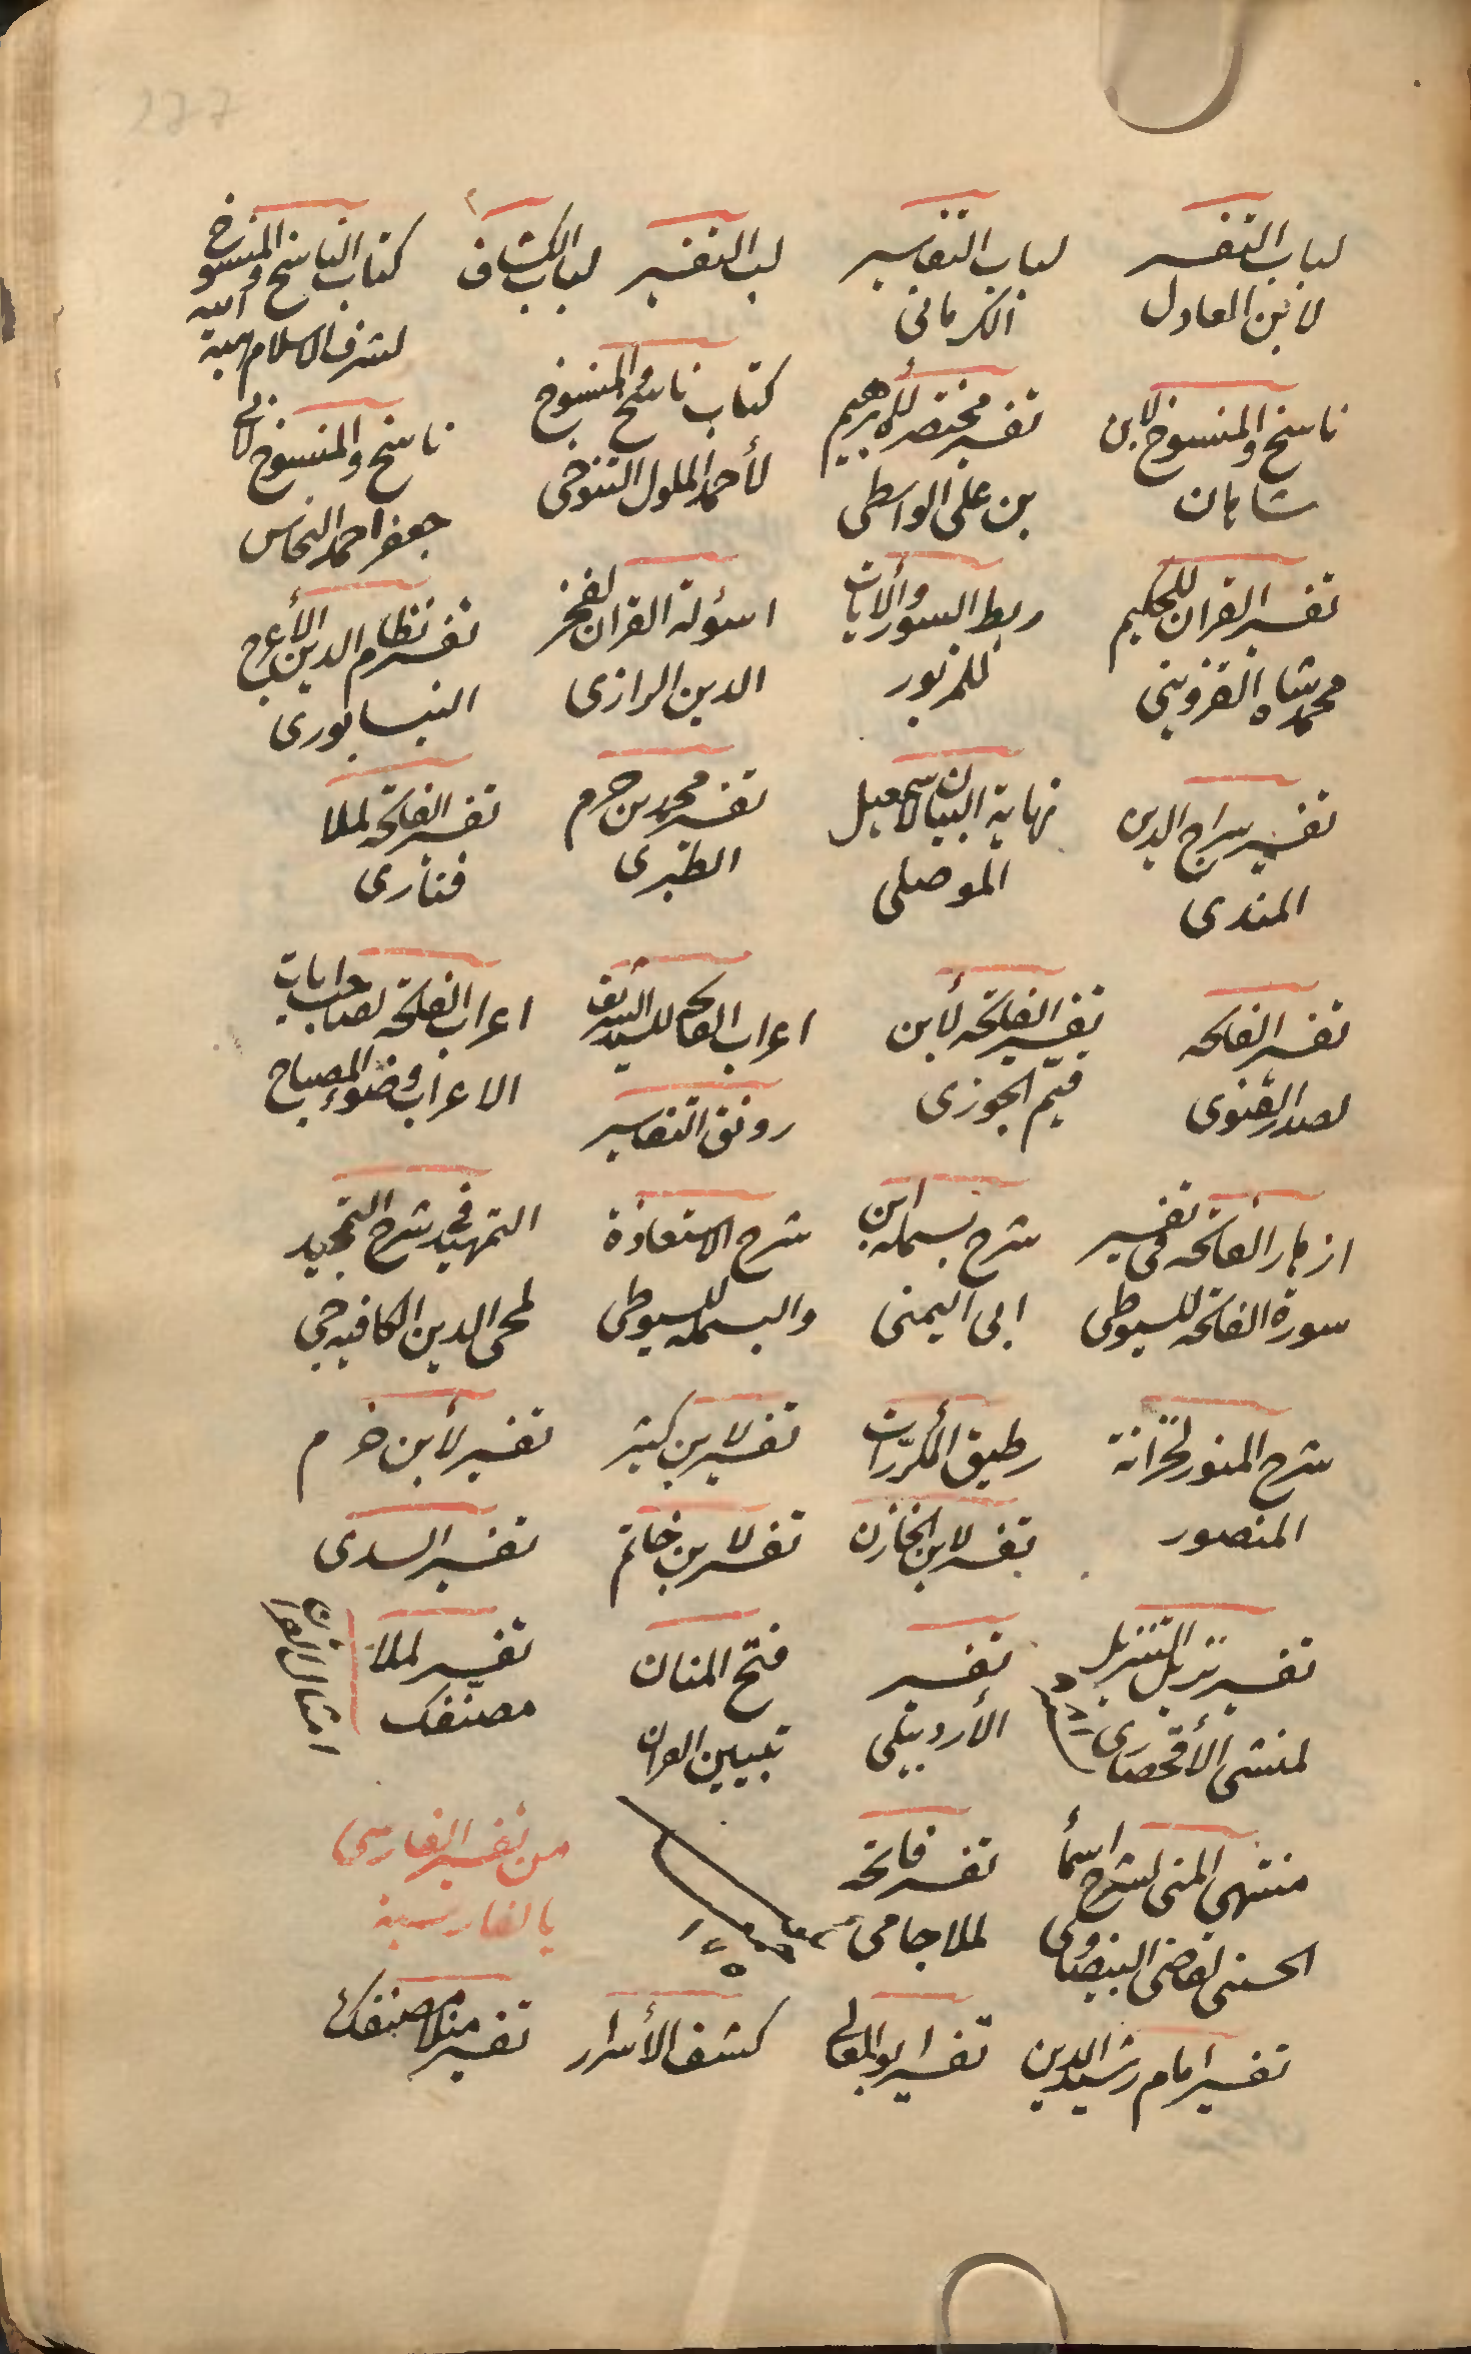 227
لباب التفسير لابن العادل
لباب التفاسير الكرمانى
لب التفسير
لباب الكشاف
كتاب الناسخ والمنسوخ لشرف الاسلام هبة الله
ناسخ والمنسوخ لابن شاهان
تفسير مختصر لأبرهيم بن على الواسطى
كتاب ناسخ المنسوخ لأحمد الملول التنوخى
ناسخ والمنسوخ لابى جعفر احمد النحاس
تفسير القران للحكيم محمد شاه القزوينى
ربط السور والآيات للمزبور
اسؤلة القران لفخر الدين الرازى
تفسير نظام الدين الأعرج النيسابورى
تفسير سراج الدين الهندى
نهاية البيان لاسمعيل الموصلى
تفسير محمد بن حرم الطبرى
تفسير الفاتحة لملا فنارى
تفسير الفاتحه لصدر القنوى
تفسير الفاتحة لأبن قيّم الجوزى
اعراب الفاتحه للسيد الشريف
رونق التفاسير
اعراب الفاتحه لصاحب الاعراب وضوء المصباح
ازهار الفاتحه فى تفسير سورة الفاتحه للسيوطى
شرح بسمله ابن ابى اليمنى
شرح الاستعاذة والبسمله للسيوطى
التمهيد فى شرح التحميد لمحى الدين الكافيه جى
شرح المنور لخزانة المنصور
تفسير لابن كثير
تفسير لأبن حزم
تفسير لابن الخازن
تفسير لابن خاتم
تفسير السدى
تفسير تنزيل التنزيل لمنشى الأقحصارى
تفسير الأردبيلى
فتح المنان
تبيين القران
تفسير لملا مصنفك
امثال القران
منتهى المنى لشرح اسمأ الحسنى لقاضى البيضاوى
تفسير فاتحه لملا جامى
من تفسير الفارسى بالفارسية
تفسير امام رشيد الدين
تفسير ابو المعالى
كشف الأسرار
تفسير منلا مصنفك